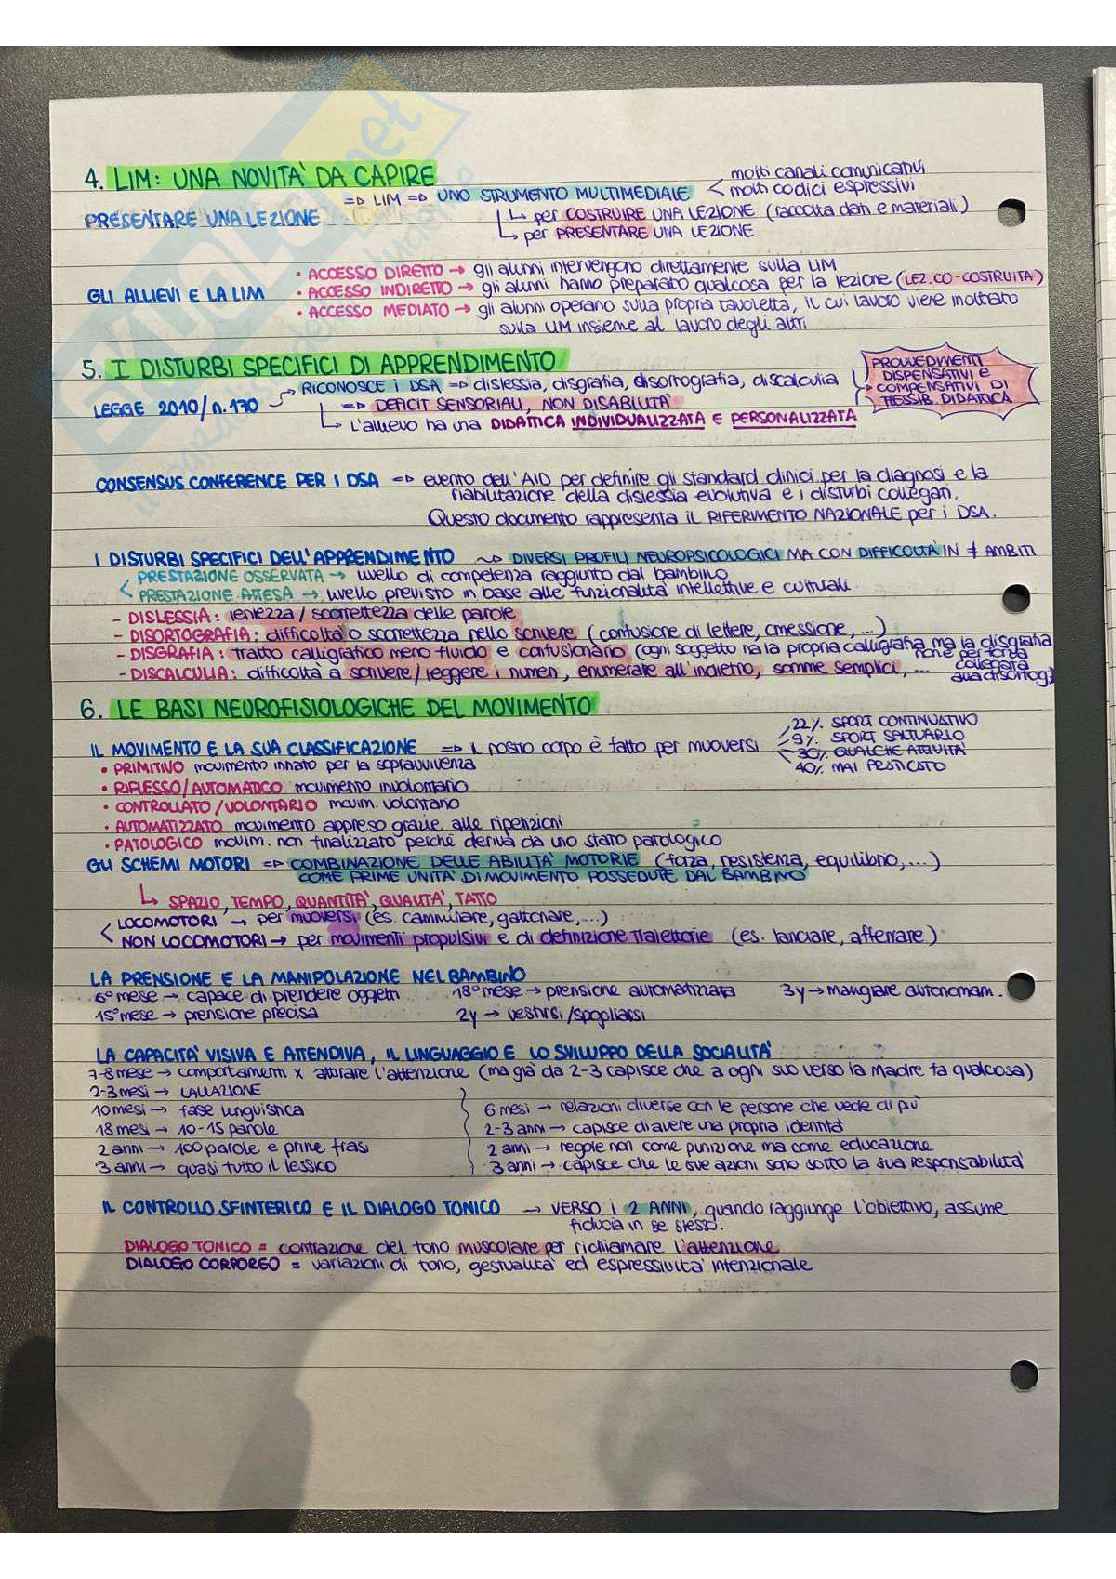 4. LIM: UNA NOVITA' DA CAPIRE
PRESENTARE UNA LEZIONE => LIM => UNO STRUMENTO MULTIMEDIALE < molti canali comunicativi
molti codici espressivi
↳ per COSTRUIRE UNA LEZIONE (raccolta dati e materiali)
↳ per PRESENTARE UNA LEZIONE
GLI ALLIEVI E LA LIM
• ACCESSO DIRETTO → gli alunni intervengono direttamente sulla LIM
• ACCESSO INDIRETTO → gli alunni hanno preparato qualcosa per la lezione (LEZ. CO-COSTRUITA)
• ACCESSO MEDIATO → gli alunni operano sulla propria tavoletta, il cui lavoro viene mostrato
sulla LIM insieme al lavoro degli altri
5. I DISTURBI SPECIFICI DI APPRENDIMENTO
LEGGE 2010/n.170 → RICONOSCE i DSA => dislessia, disgrafia, disortografia, discalculia
=> DEFICIT SENSORIALI, NON DISABILITA'
↳ L'allievo ha una DIDATTICA INDIVIDUALIZZATA E PERSONALIZZATA
PROVVEDIMENTI
DISPENSATIVI E
COMPENSATIVI DI
FLESSIB. DIDATTICA
CONSENSUS CONFERENCE PER I DSA => evento dell'AID per definire gli standard clinici per la diagnosi e la
riabilitazione della dislessia evolutiva e i disturbi collegati.
Questo documento rappresenta IL RIFERIMENTO NAZIONALE per i DSA.
I DISTURBI SPECIFICI DELL'APPRENDIMENTO ~> DIVERSI PROFILI NEUROPSICOLOGICI MA CON DIFFICOLTA' IN ≠ AMBITI
< PRESTAZIONE OSSERVATA → livello di competenza raggiunto dal bambino
PRESTAZIONE ATTESA → livello previsto in base alle funzionalità intellettive e culturali
- DISLESSIA: lentezza / scorrettezza delle parole
- DISORTOGRAFIA: difficoltà o scorrettezza nello scrivere (confusione di lettere, omessione, ...)
- DISGRAFIA: tratto calligrafico meno fluido e confusionario (ogni soggetto ha la propria calligrafia ma la disgrafia
non è per forza
collegata
alla disortog)
- DISCALCULIA: difficoltà a scrivere/leggere i numeri, enumerare all'indietro, somme semplici, ...
6. LE BASI NEUROFISIOLOGICHE DEL MOVIMENTO
IL MOVIMENTO E LA SUA CLASSIFICAZIONE => il nostro corpo è fatto per muoversi
22% SPORT CONTINUATIVO
9% SPORT SALTUARIO
30% QUALCHE ATTIVITA'
40% MAI PRATICATO
• PRIMITIVO movimento innato per la sopravvivenza
• RIFLESSO/AUTOMATICO movimento involontario
• CONTROLLATO/VOLONTARIO movim. volontario
• AUTOMATIZZATO movimento appreso grazie alle ripetizioni
• PATOLOGICO movim. non finalizzato perchè deriva da uno stato patologico
GLI SCHEMI MOTORI => COMBINAZIONE DELLE ABILITA' MOTORIE (forza, resistenza, equilibrio, ...)
COME PRIME UNITA' DI MOVIMENTO POSSEDUTE DAL BAMBINO
↳ SPAZIO, TEMPO, QUANTITA', QUALITA', TATTO
< LOCOMOTORI → per muoversi (es. camminare, gattonare, ...)
NON LOCOMOTORI → per movimenti propulsivi e di definizione traiettorie (es. lanciare, afferrare)
LA PRENSIONE E LA MANIPOLAZIONE NEL BAMBINO
6° mese → capace di prendere oggetti 18° mese → prensione automatizzata 3y → mangiare autonomam.
15° mese → prensione precisa 2y → vestirsi/spogliarsi
LA CAPACITA' VISIVA E ATTENTIVA, IL LINGUAGGIO E LO SVILUPPO DELLA SOCIALITA'
7-8 mese → comportamenti x attirare l'attenzione (ma già da 2-3 capisce che a ogni suo verso la madre fa qualcosa)
2-3 mesi → LALLAZIONE
10 mesi → fase linguistica
18 mesi → 10-15 parole
2 anni → 100 parole e prime frasi
3 anni → quasi tutto il lessico
6 mesi → relazioni diverse con le persone che vede di più
2-3 anni → capisce di avere una propria identità
2 anni → regole non come punizione ma come educazione
3 anni → capisce che le sue azioni sono sotto la sua responsabilità
IL CONTROLLO SFINTERICO E IL DIALOGO TONICO → VERSO I 2 ANNI, quando raggiunge l'obiettivo, assume
fiducia in se stesso.
DIALOGO TONICO = contrazione del tono muscolare per richiamare l'attenzione
DIALOGO CORPOREO = variazioni di tono, gestualità ed espressività intenzionale